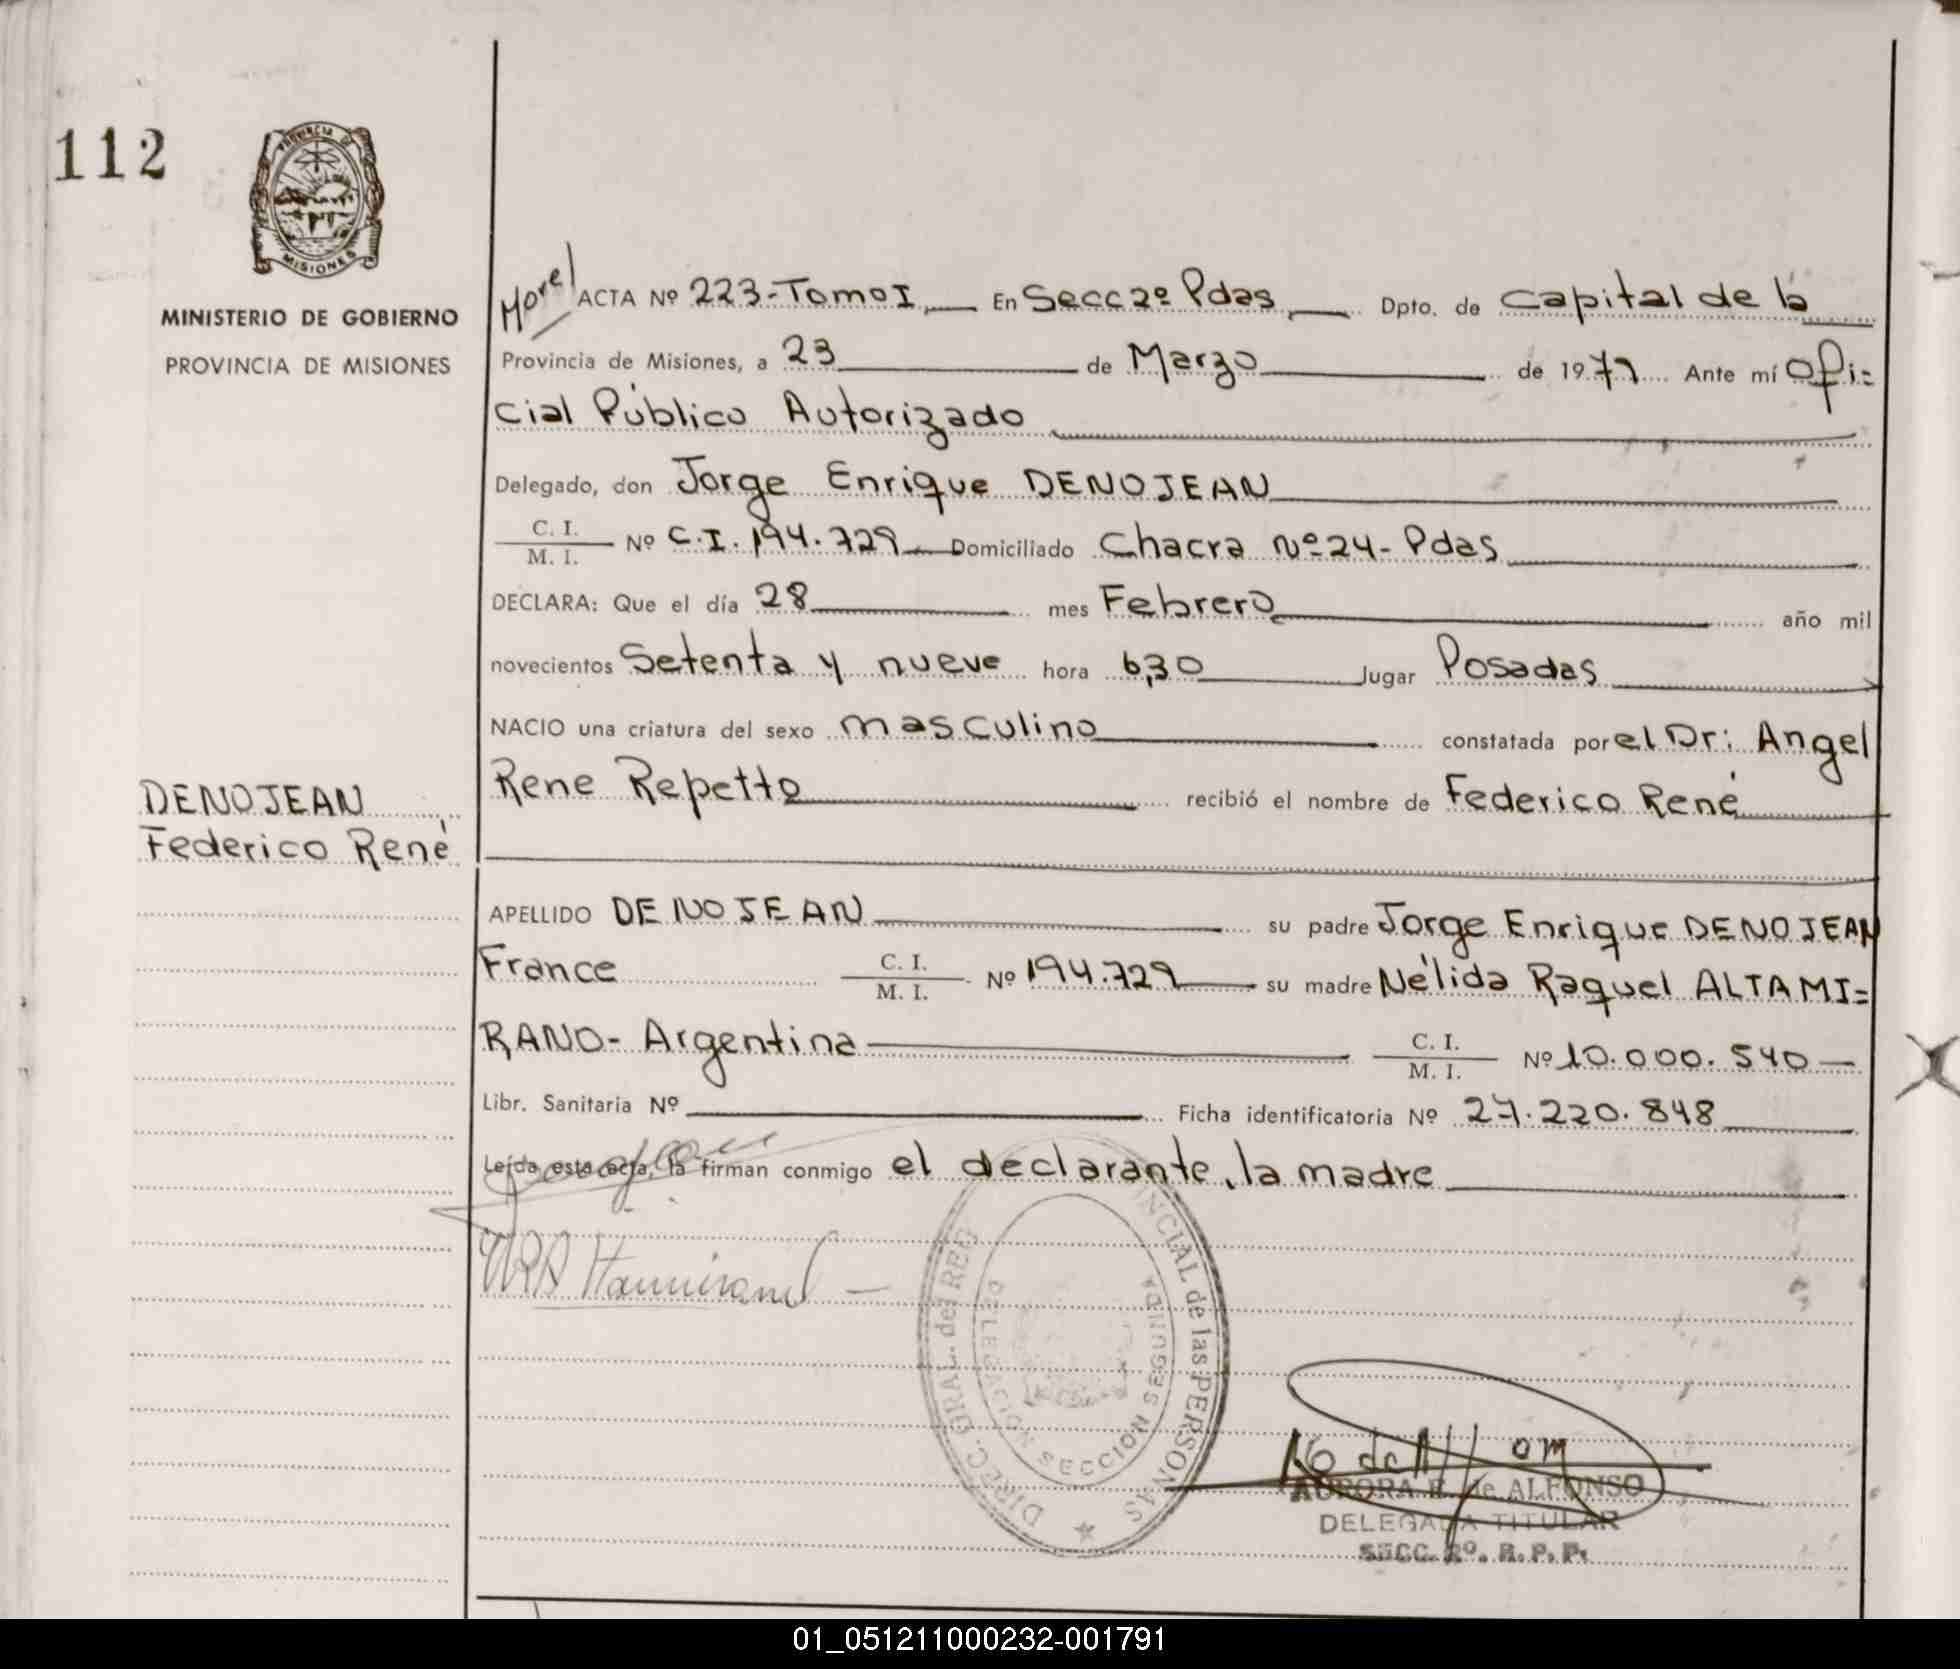 112
PROVINCIA DE
MISIONES
MINISTERIO DE GOBIERNO
PROVINCIA DE MISIONES
Morel ACTA Nº 223-Tomo I En Secc 2º Pdas Dpto. de Capital de la
Provincia de Misiones, a 23 de Marzo de 1979 Ante mí Ofi=
cial Público Autorizado
Delegado, don Jorge Enrique DENOJEAN
C. I.
M. I. Nº C.I. 194.729 Domiciliado Chacra Nº 24- Pdas
DECLARA: Que el día 28 mes Febrero año mil
novecientos Setenta y nueve hora 6,30 lugar Posadas
NACIO una criatura del sexo masculino constatada por el Dr: Angel
Rene Repetto recibió el nombre de Federico René
DENOJEAN
Federico René
APELLIDO DENOJEAN su padre Jorge Enrique DENOJEAN
France C. I. M. I. Nº 194.729 su madre Nélida Raquel ALTAMI=
RANO- Argentina C. I. M. I. Nº 10.000.540
Libr. Sanitaria Nº Ficha identificatoria Nº 27.220.848
Leída esta acta, la firman conmigo el declarante, la madre
DIREC. GRAL. del REG. PROVINCIAL de las PERSONAS
DELEGACION SECCION SEGUNDA
AURORA E. de ALFONSO
DELEGADA TITULAR
SECC. 2º. R. P. P.
01_051211000232-001791